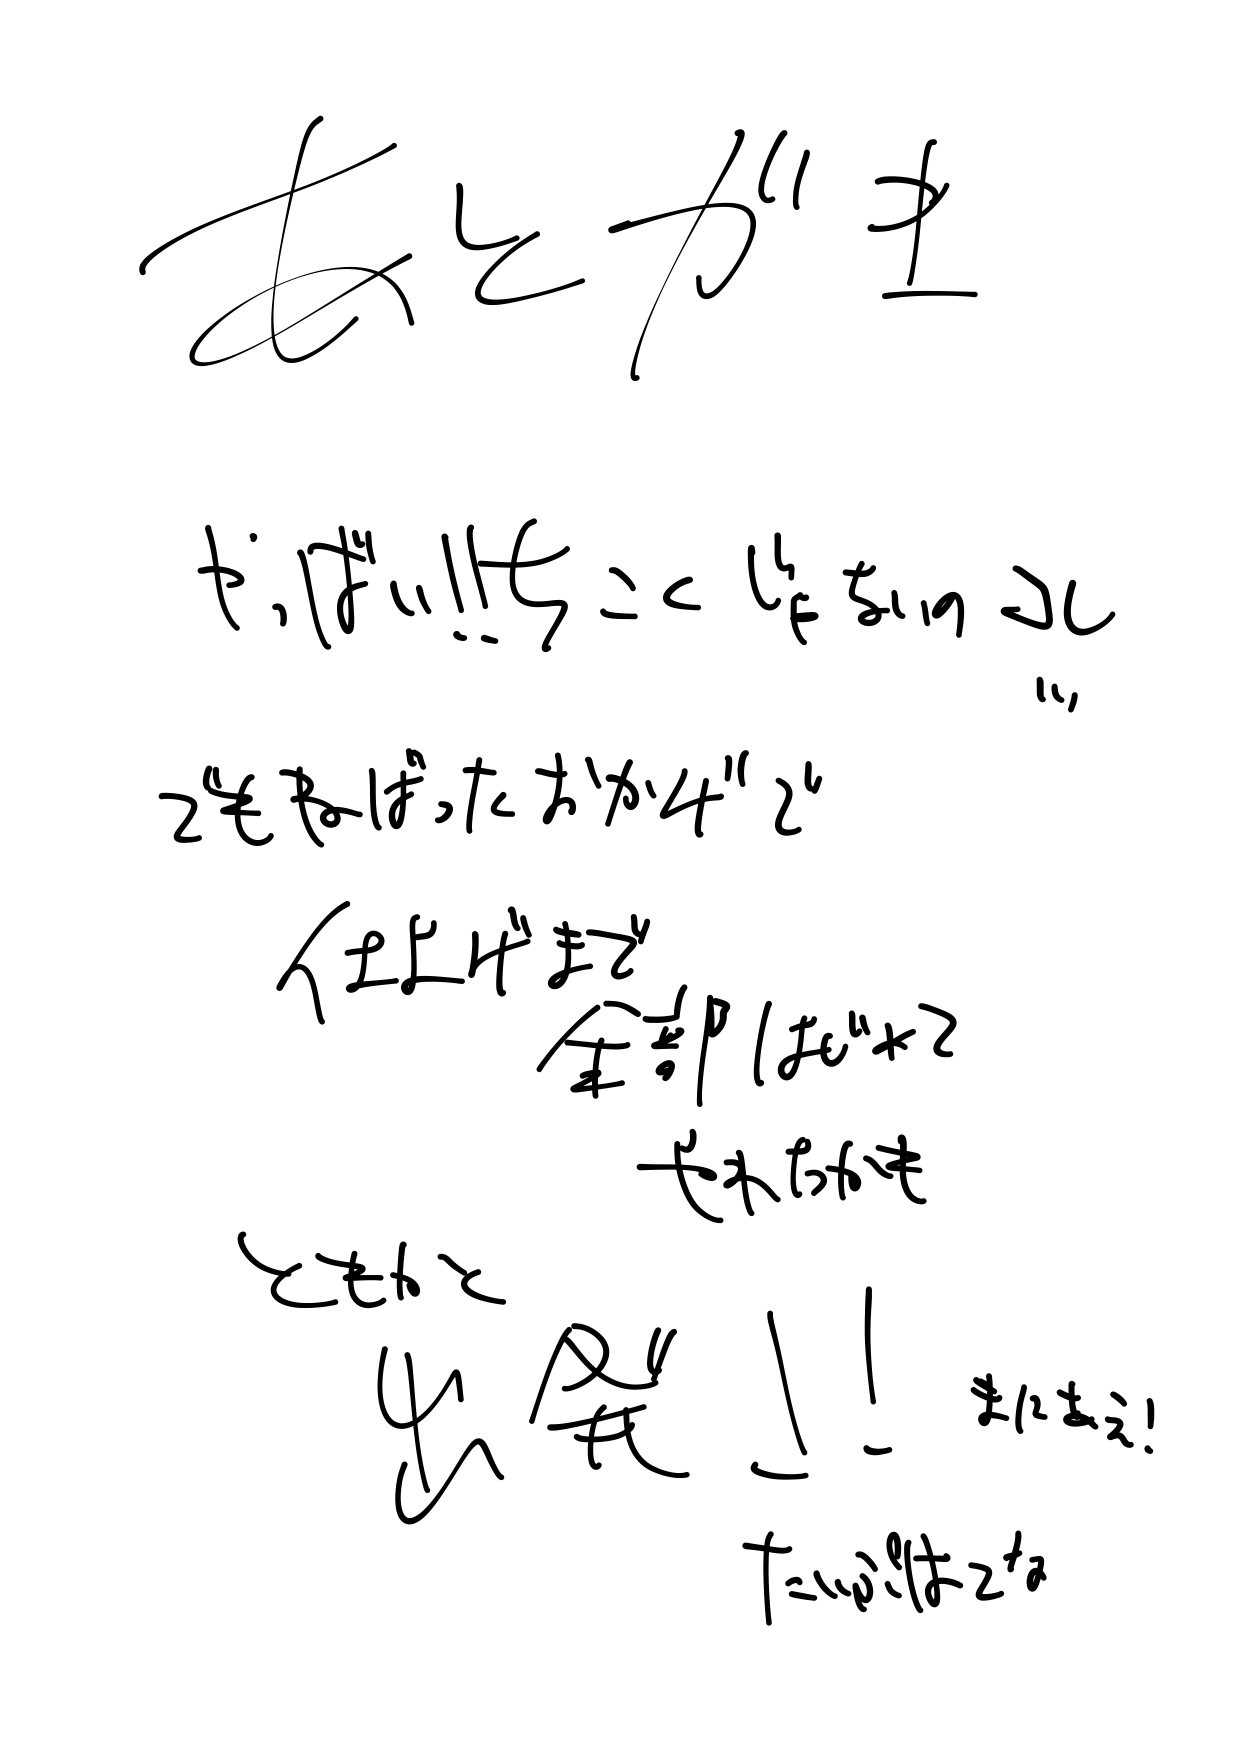 あとがき
やっばい!!ちこくじゃないのコレ
…
でもねばったおかげで
仕上げまで
全部はじめて
やれたかも
ともかく
出発!!
まにあえ!
たいぷはてな